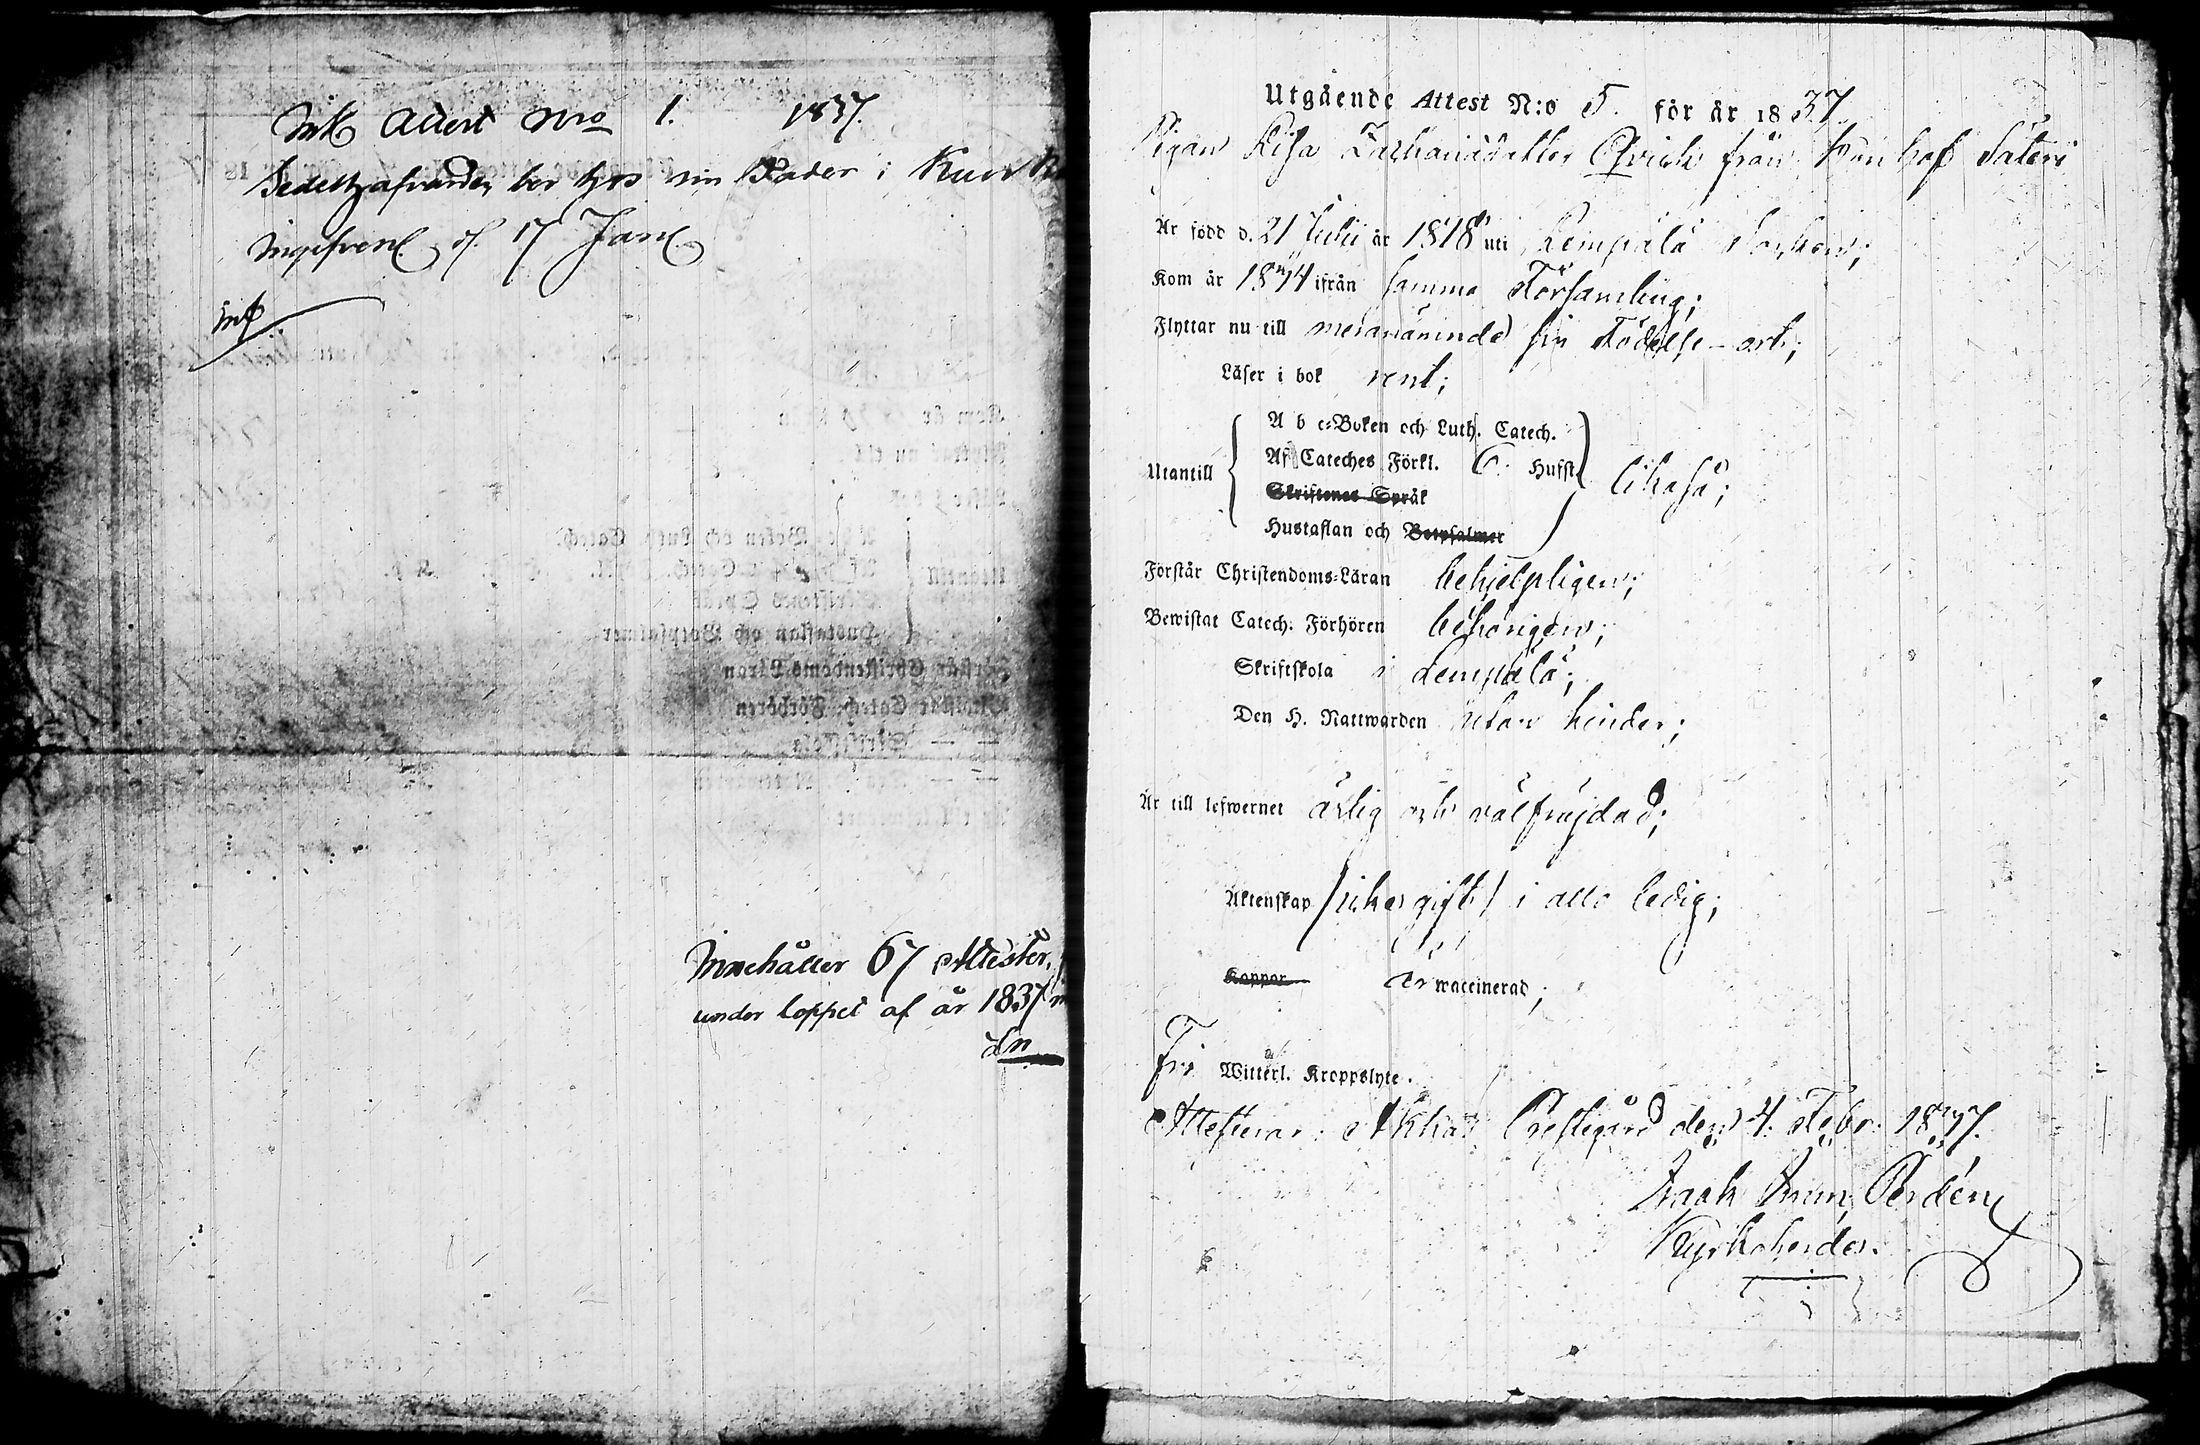 Ink Attest Nro 1. 1837.
bor hos sin Fader i
d. 17 Jan.
Innehåller 67 Attester,
under loppet af år 1837
Utgående Attest N:o 5. för år 1837.
Pigan Lisa Zachariædotter Qvick från Säteri
Är född d. 21 Julii år 1818 uti Lempälä Socken;
Kom år 1834 ifrån samma Församling;
Flyttar nu till meranämnde sin Födelse-ort;
Läser i bok rent;
A b c-Boken och Luth. Catech.
Utantill Af Cateches Förkl. 6. Hufst. likaså;
Skriftenes Språk
Hustaflan och Botpsalmer
Förstår Christendoms-Läran behjelpligen;
Bewistat Catech. Förhören behörigen;
Skriftskola i Lempälä;
Den H. Nattwarden utan hinder;
Är till lefwernet ärlig och välfrejdad;
Äktenskap (icke gift) i allo ledig;
Koppor Är waccinerad;
Fri Witterl. Kroppslyte.
Attesterar. Akkas Prestegård den 4. Febr. 1837.
Kyrkoherde.